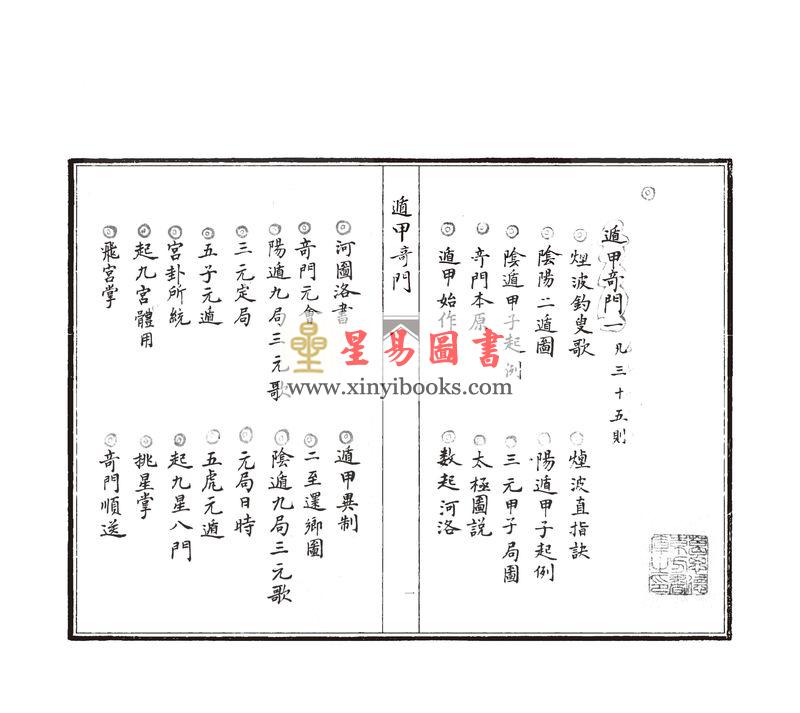 遁甲奇門一 凡三十五則
煙波釣叟歌
煙波直指訣
陰陽二遁圖
陽遁甲子起例
陰遁甲子起例
三元甲子局圖
奇門本原
太極圖説
遁甲始作
數起河洛
遁甲奇門
一
河圖洛書
遁甲異制
奇門元會
二至還鄉圖
陽遁九局三元歌
陰遁九局三元歌
三元定局
元局日時
五子元遁
五虎元遁
宮卦所統
起九星八門
起九宮體用
挑星掌
飛宮掌
奇門順送
星易圖書
www.xinyibooks.com